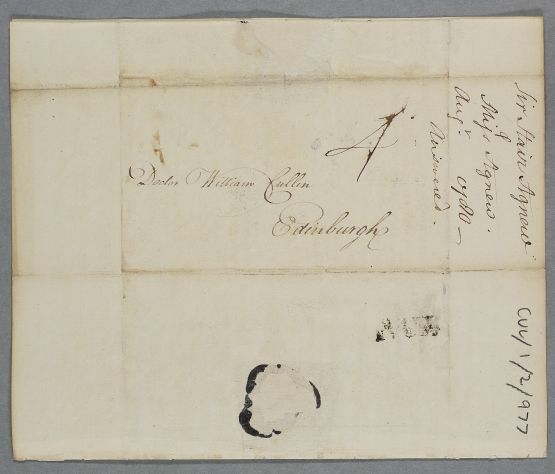 4
Doctor William Cullin
Edinburgh
Sir Stair Agnew
Miss Agnew.
Augt.
Answered.
CUL/1/2/977